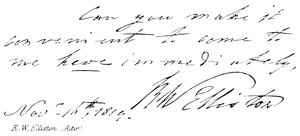 Can you make it
convenient to come to
me here immediately,
RW Elliston
Novr 15th, 1819.
R. W. Elliston (Actor)